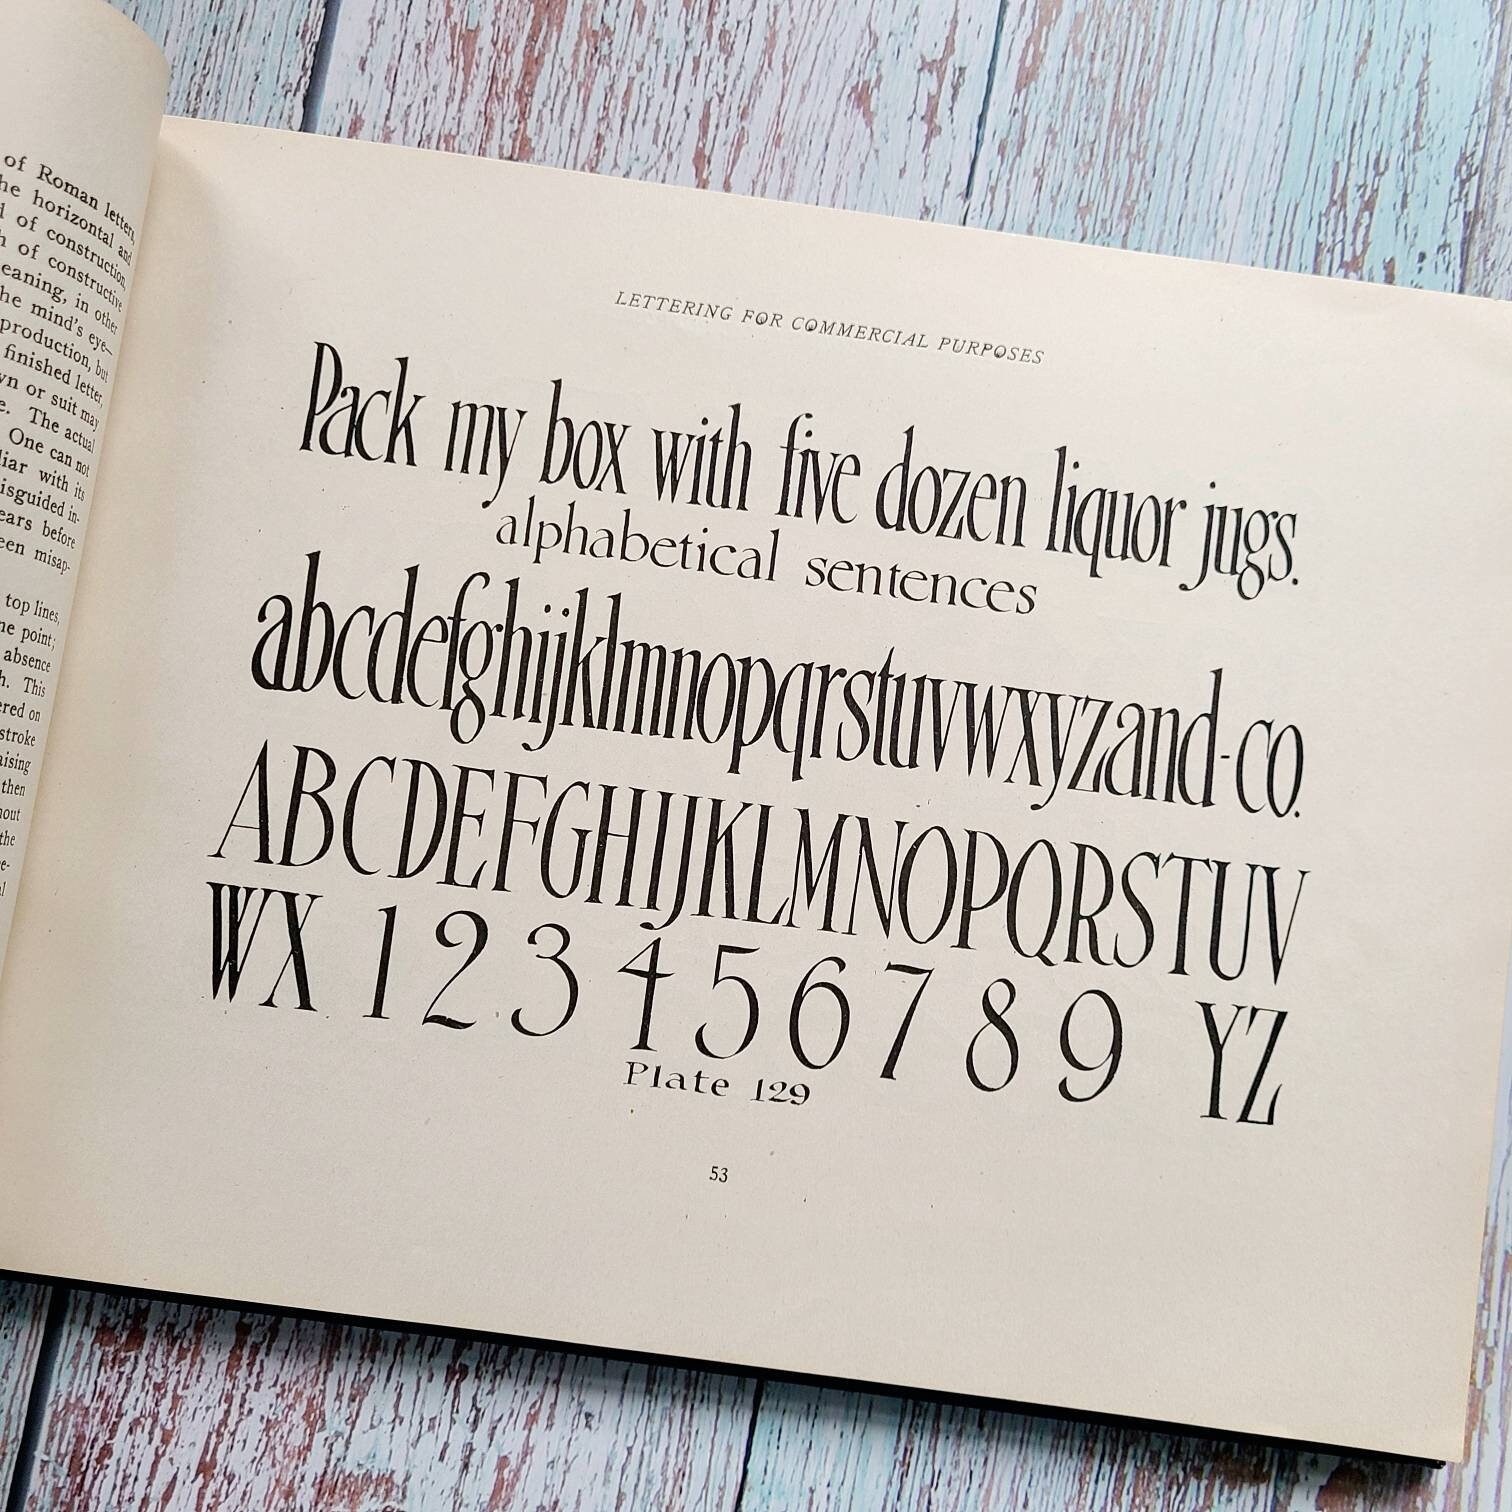 of Roman letters,
he horizontal and
d of construction,
h of constructive
eaning, in other
he mind's eye—
production, but
finished letter,
wn or suit may
e. The actual
One can not
liar with its
isguided in-
ears before
een misap-
top lines,
ne point;
absence
h. This
ered on
stroke
aising
then
hout
the
e-
LETTERING FOR COMMERCIAL PURPOSES
Pack my box with five dozen liquor jugs.
alphabetical sentences
abcdefghijklmnopqrstuvwxyzand-co.
ABCDEFGHIJKLMNOPQRSTUV
WX 1 2 3 4 5 6 7 8 9 YZ
Plate 129
53